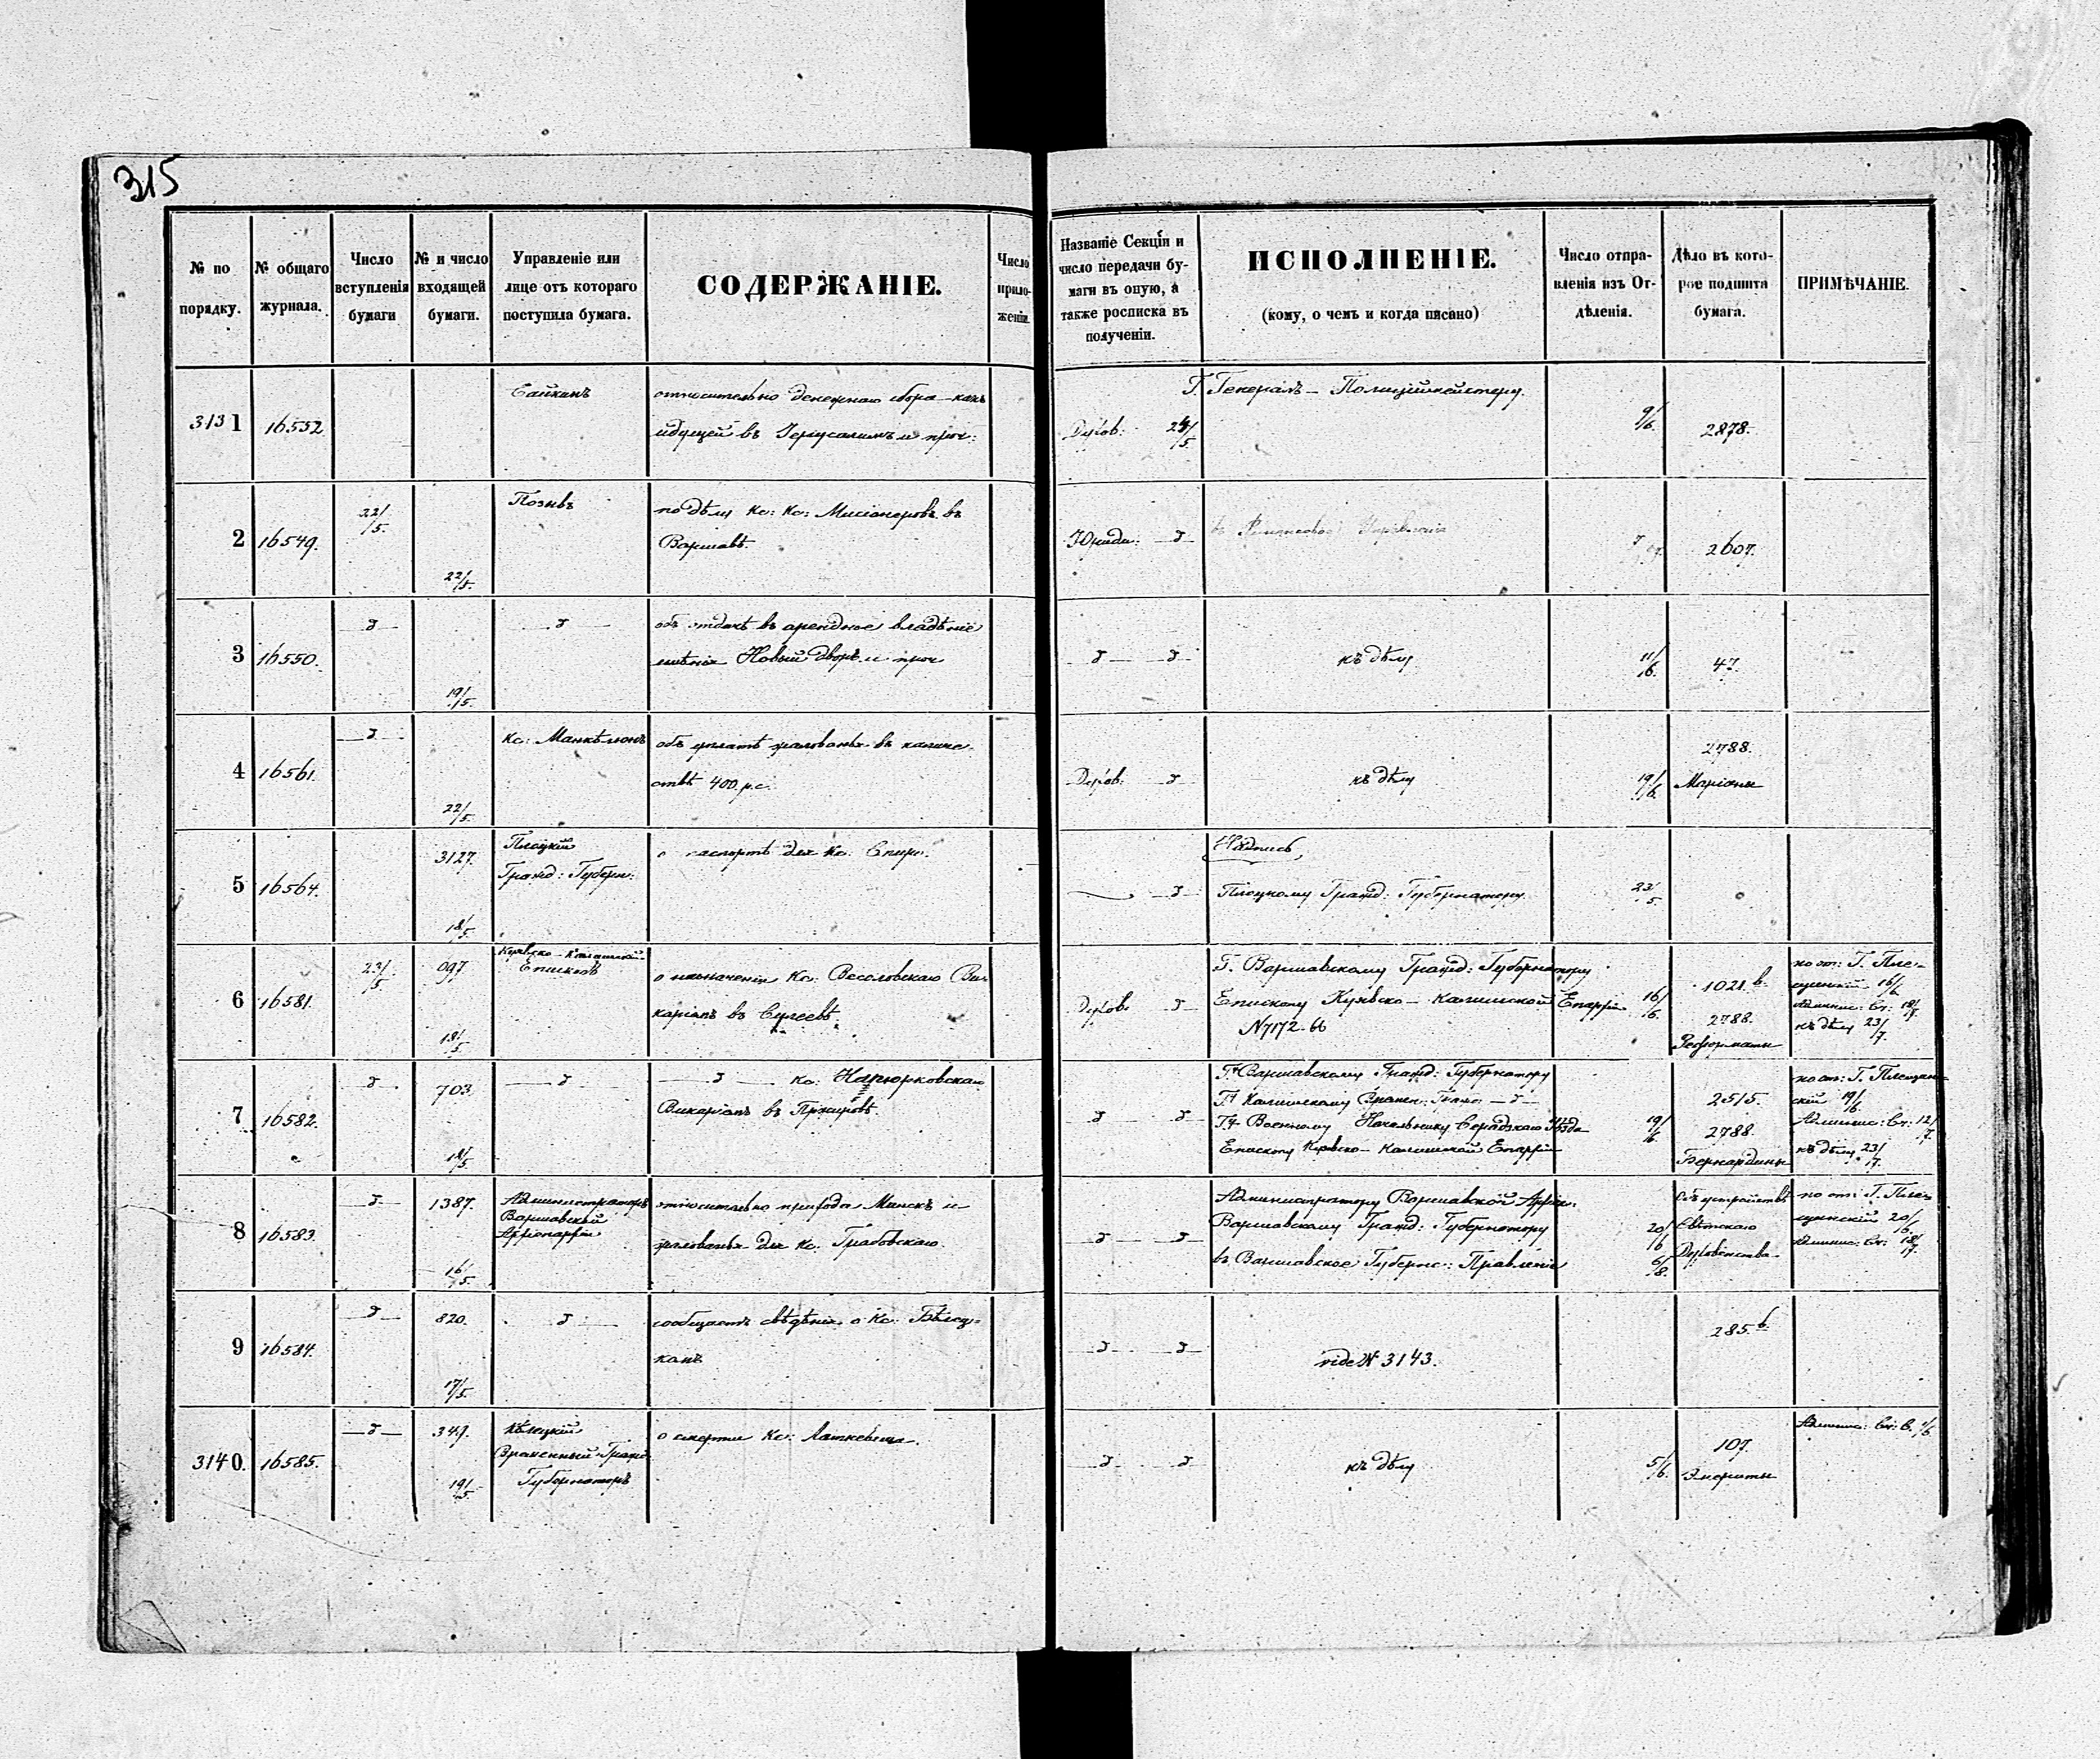 315
№ по порядку.
№ общаго журнала.
Число вступленія бумаги
№ и число входящей бумаги.
Управленіе или лице отъ котораго поступила бумага.
СОДЕРЖАНІЕ.
Число приложеній.
Названіе Секціи и число передачи бумаги въ оную, а также росписка въ полученіи.
ИСПОЛНЕНІЕ.
(кому, о чемъ и когда писано)
Число отправленія изъ Отдѣленія.
Дѣло въ которое подшита бумага.
ПРИМѢЧАНІЕ.
3131
16552
относительно денежнаго сбора
идущей въ Іерусалимъ и проч:
Духов:
Г. Генералъ-Полиціймейстеру.
9/6.
2878.
2
16549.
22/5.
22/5.
по дѣлу Кс: Кс: Миссіонеровъ въ
Варшавѣ.
Юриди:
2607.
3
16550.
19/5.
объ отдачѣ въ арендное владѣніе
имѣнія Новый дворъ и проч
къ дѣлу
11/6.
47.
4
16561.
22/5.
Кс:
объ уплатѣ жалованья въ количе-
ствѣ 400 р.с.
Духов:
къ дѣлу
19/6.
2788.
Маріаны
5
16564.
3127.
18/5.
Плоцкій
Гражд: Губерн:
о паспортѣ для Кс.
Надпись
Плоцкому Гражд: Губернатору
23/5.
6
16581.
23/5.
097.
18/5.
Куявско-Калишскій
Епископъ
о назначеніи Кс: Весоловскаго Ви-
каріемъ въ Сулеевѣ.
Духов.
Г. Варшавскому Гражд: Губернатору
Епископу Куявско-Калишской Епархіи
N7172-66
16/6.
1021 b.
2788.
Реформаты
16/6
Админис: Ст: 18/7.
къ дѣлу 23/7.
7
16582.
703.
18/5
Кс:
Викаріемъ въ
Г. Варшавскому Гражд: Губернатору
Гну Калишскому
Гну Военному Начальнику Серадзкаго Уѣзда
Епископу Куявско-Калишской Епархіи
19/6
2515.
2788.
Бернардины
19/6.
Админис: Ст: 12/7.
къ дѣлу 23/7.
8
16583.
1387.
16/5.
Администраторъ
Варшавской
Архіепархіи
относительно прихода Минскъ и
жалованья для Кс. Грабовскаго.
Администратору Варшавской Архіеп.
Варшавскому Гражд: Губернатору
въ Варшавское Губернс: Правленіе
20/6
6/8.
Объ устройствѣ
Свѣтскаго
Духовенства.
20/6.
Админис: Ст: 18/7.
9
16584.
820.
17/5.
сообщаетъ свѣдѣнія о Кс.
vide N 3143.
285 b.
3140.
16585.
349.
19/5.
Кѣлецкій
Временный Гражд
Губернаторъ
о смерти Кс:
къ дѣлу
5/6.
107.
Эмериты
Админис: Ст: